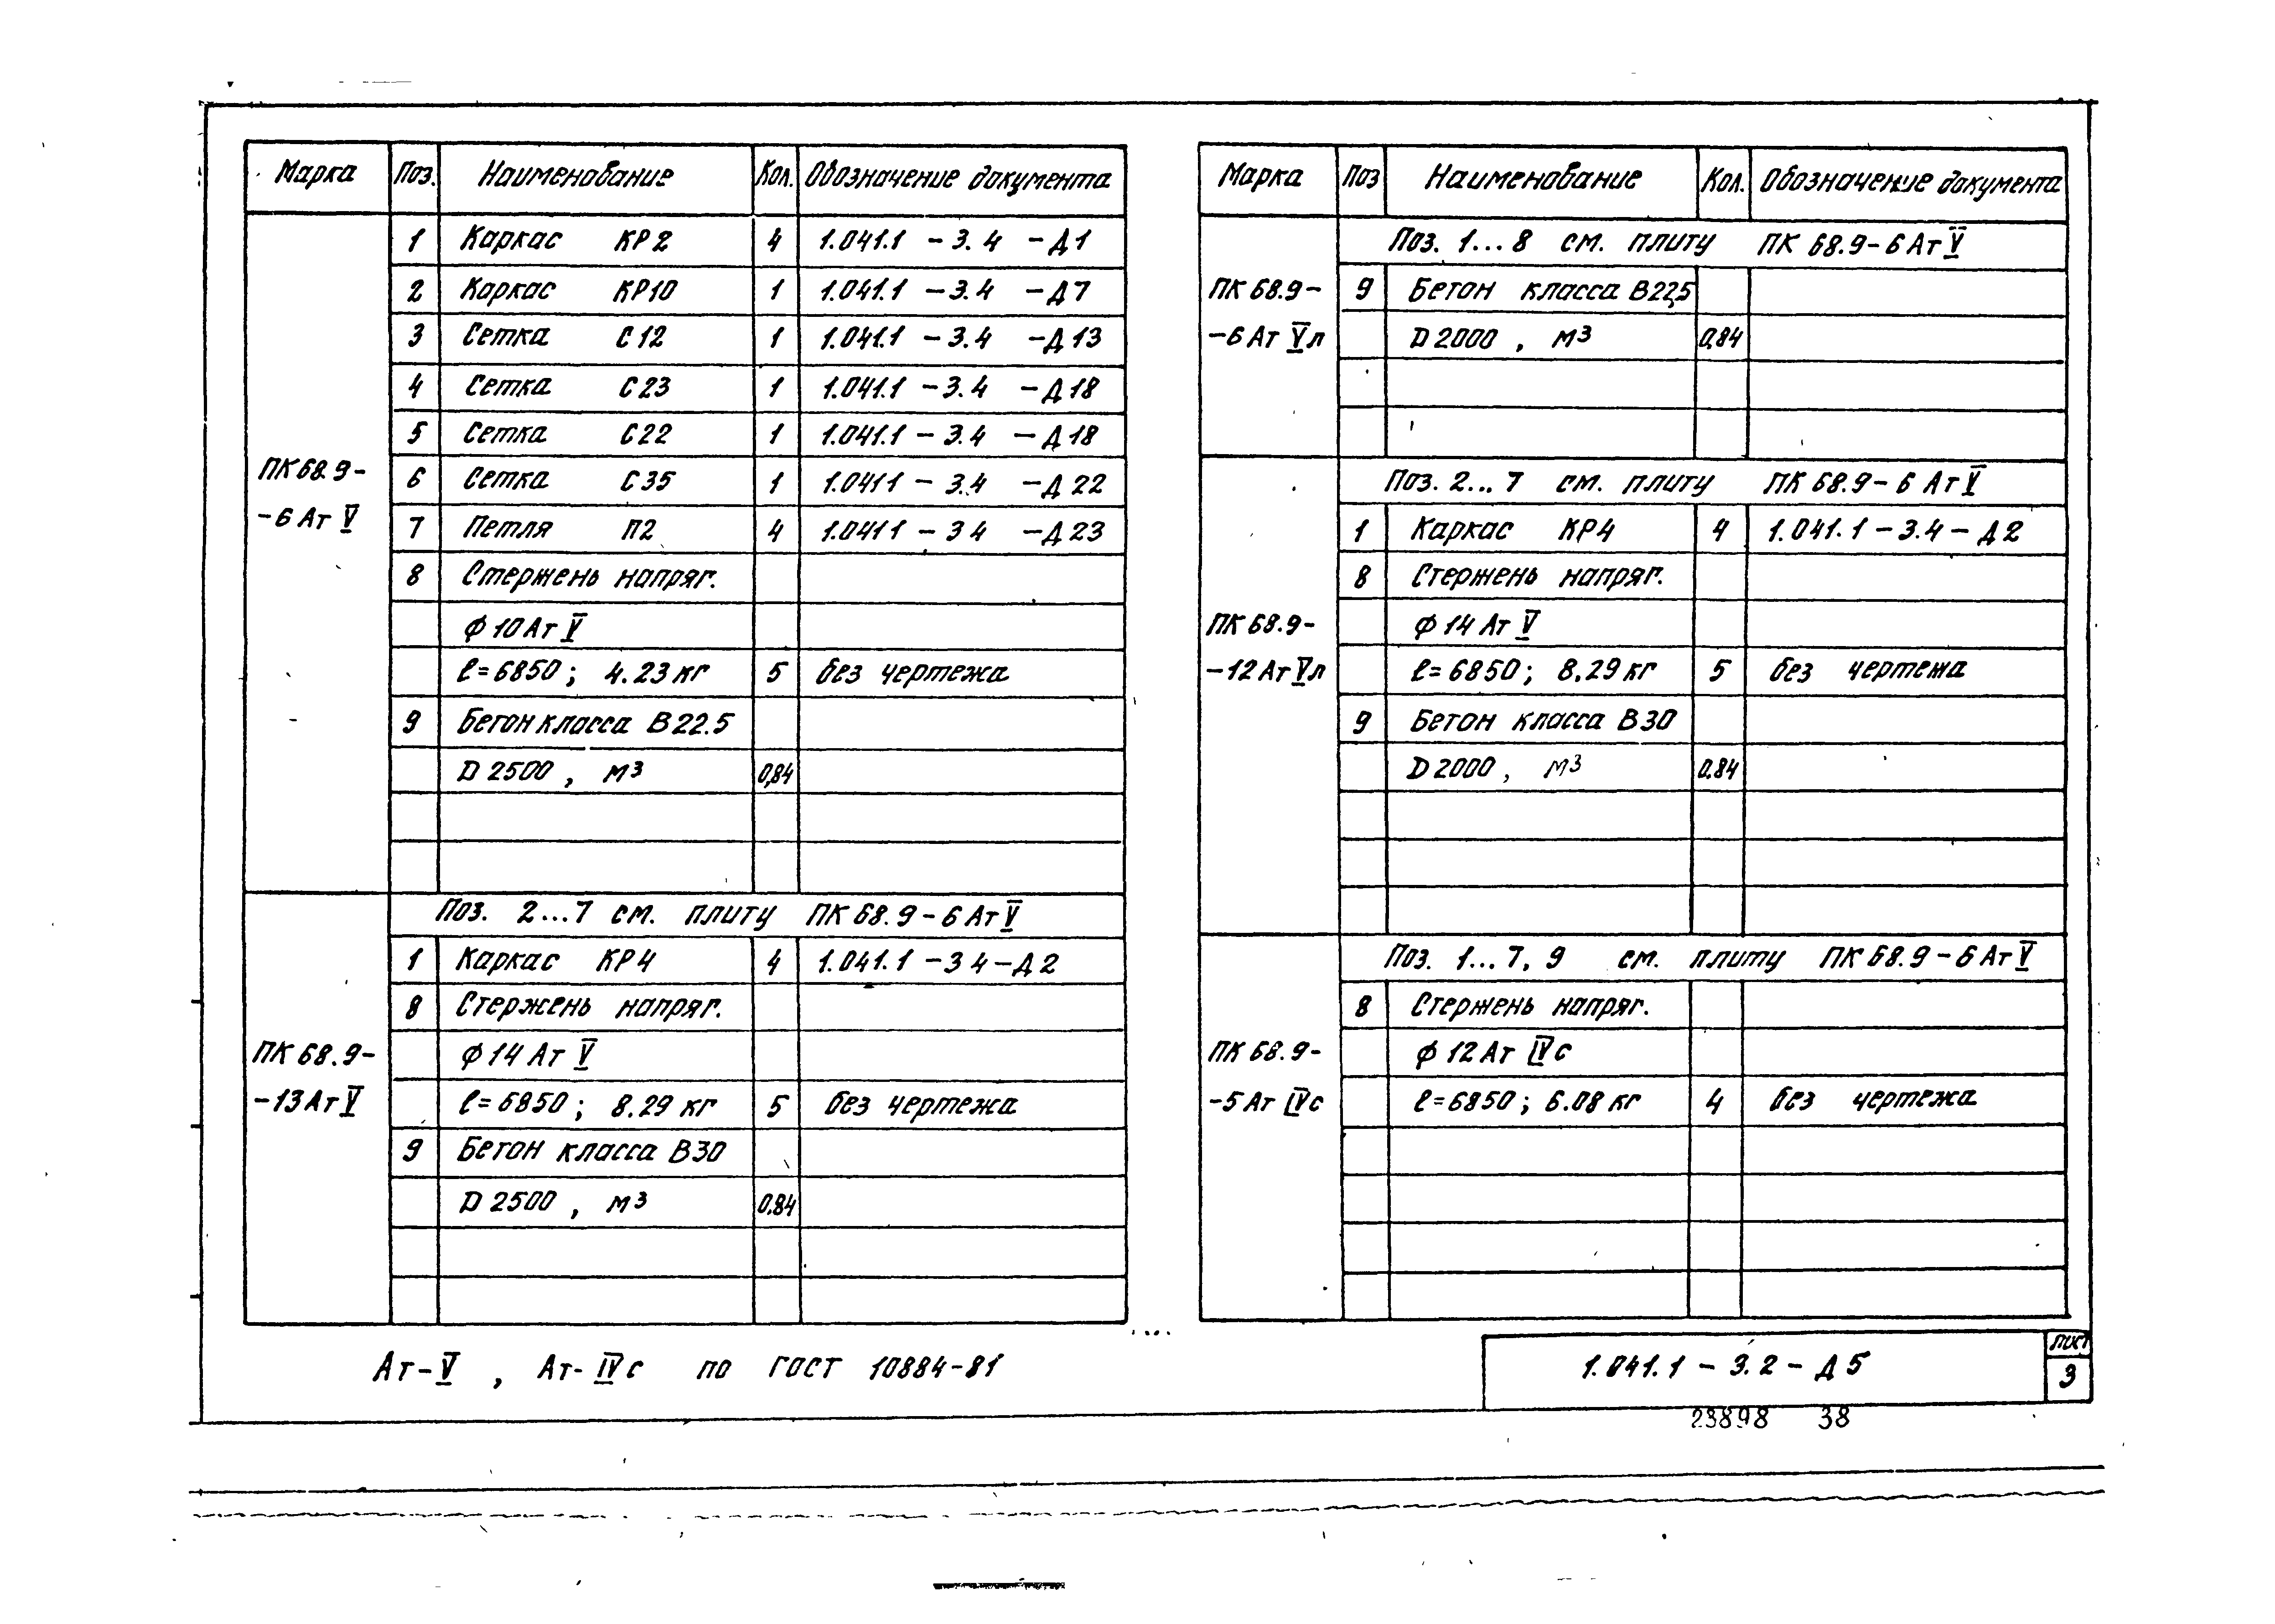 Марка Поз. Наименование Кол. Обозначение документа
ПК 68.9-
-6 Ат V
1 Каркас КР2 4 1.041.1 - 3.4 - Д1
2 Каркас КР10 1 1.041.1 - 3.4 - Д7
3 Сетка С12 1 1.041.1 - 3.4 - Д13
4 Сетка С23 1 1.041.1 - 3.4 - Д18
5 Сетка С22 1 1.041.1 - 3.4 - Д18
6 Сетка С35 1 1.0411 - 3.4 - Д22
7 Петля П2 4 1.0411 - 3 4 - Д23
8 Стержень напряг.
ф 10 Ат V
ℓ=6850; 4.23 кг 5 без чертежа
9 Бетон класса В22.5
D 2500, м3 0,84
ПК 68.9-
-13 Ат V
Поз. 2...7 см. плиту ПК 68.9-6 Ат V
1 Каркас КР4 4 1.041.1 - 3 4 - Д2
8 Стержень напряг.
ф 14 Ат V
ℓ=6850; 8.29 кг 5 без чертежа
9 Бетон класса В30
D 2500, м3 0.84
Марка Поз Наименование Кол. Обозначение документа
ПК 68.9-
-6 Ат Vл
Поз. 1...8 см. плиту ПК 68.9-6 Ат V
9 Бетон класса В22,5
D 2000, м3 0,84
ПК 68.9-
-12 Ат Vл
Поз. 2...7 см. плиту ПК 68.9-6 Ат V
1 Каркас КР4 4 1.041.1 - 3.4 - Д2
8 Стержень напряг.
ф 14 Ат V
ℓ=6850; 8.29 кг 5 без чертежа
9 Бетон класса В30
D 2000, м3 0.84
ПК 68.9-
-5 Ат IVс
Поз. 1...7, 9 см. плиту ПК 68.9-6 Ат V
8 Стержень напряг.
ф 12 Ат IVс
ℓ=6850; 6.08 кг 4 без чертежа
Ат-V, Ат-IVс по ГОСТ 10884-81
1.041.1 - 3.2 - Д5
Лист
3
23898 38